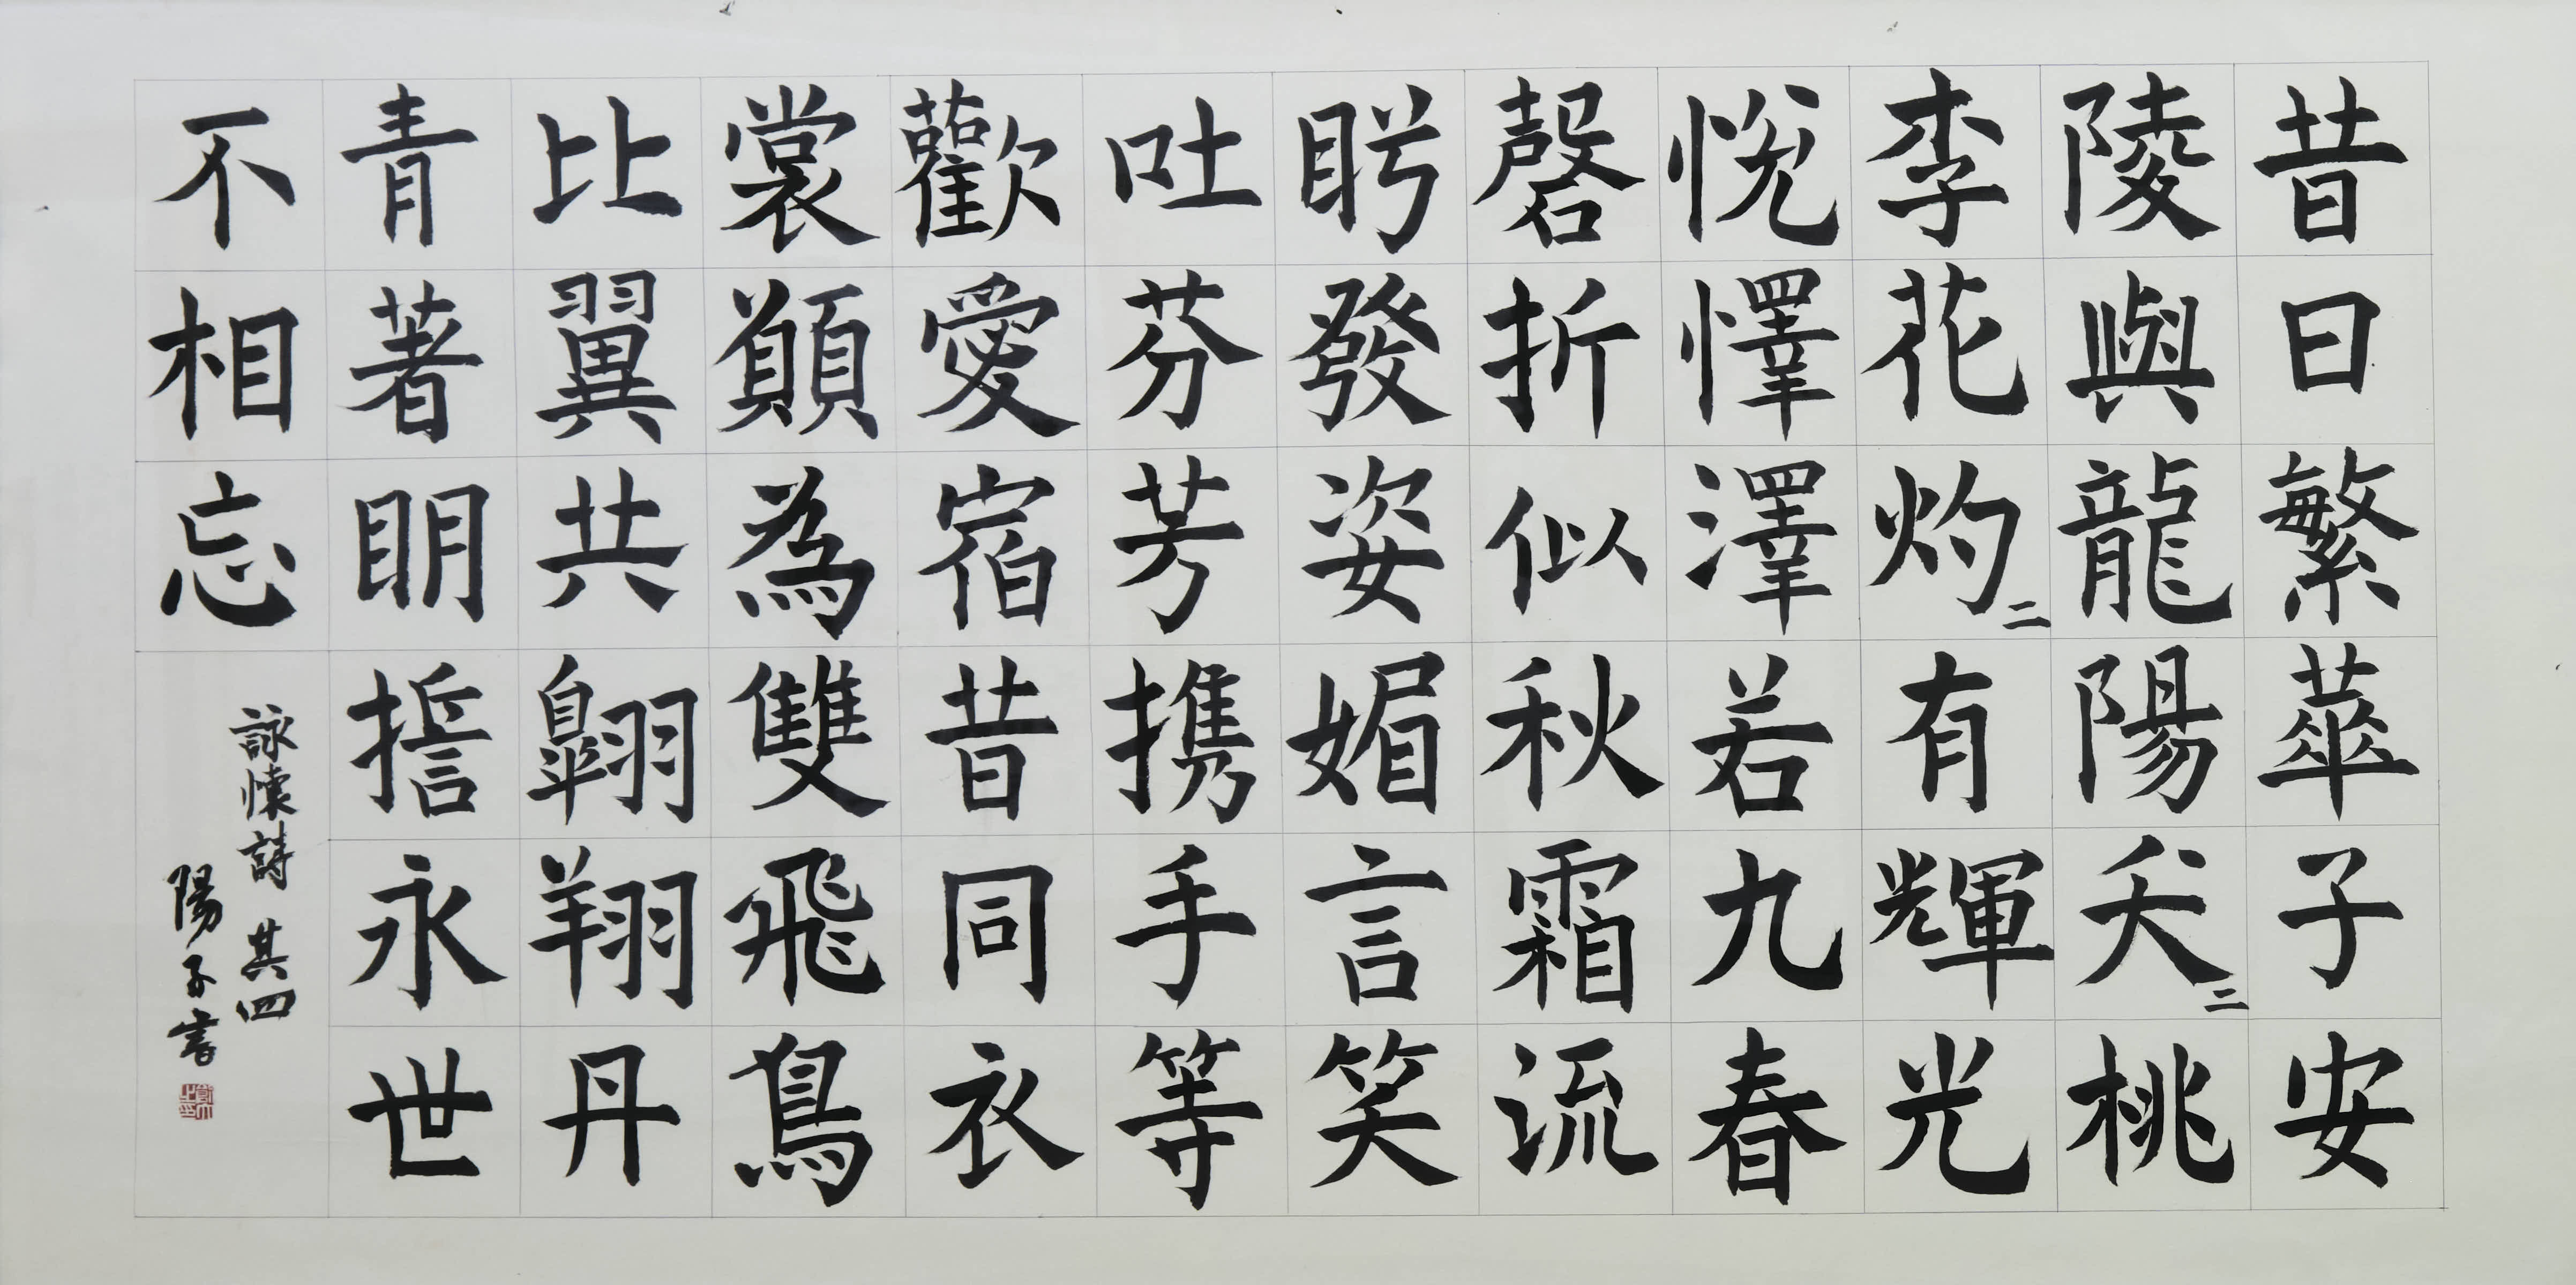 昔日繁華子安
陵與龍陽夭二桃
李花灼二有輝光
悅懌澤若九春
磬折似秋霜流
盻發姿媚言笑
吐芬芳携手等
歡愛宿昔同衣
裳願為雙飛鳥
比翼共翱翔丹
青著眀誓永世
不相忘
詠懷詩 其四
陽子書